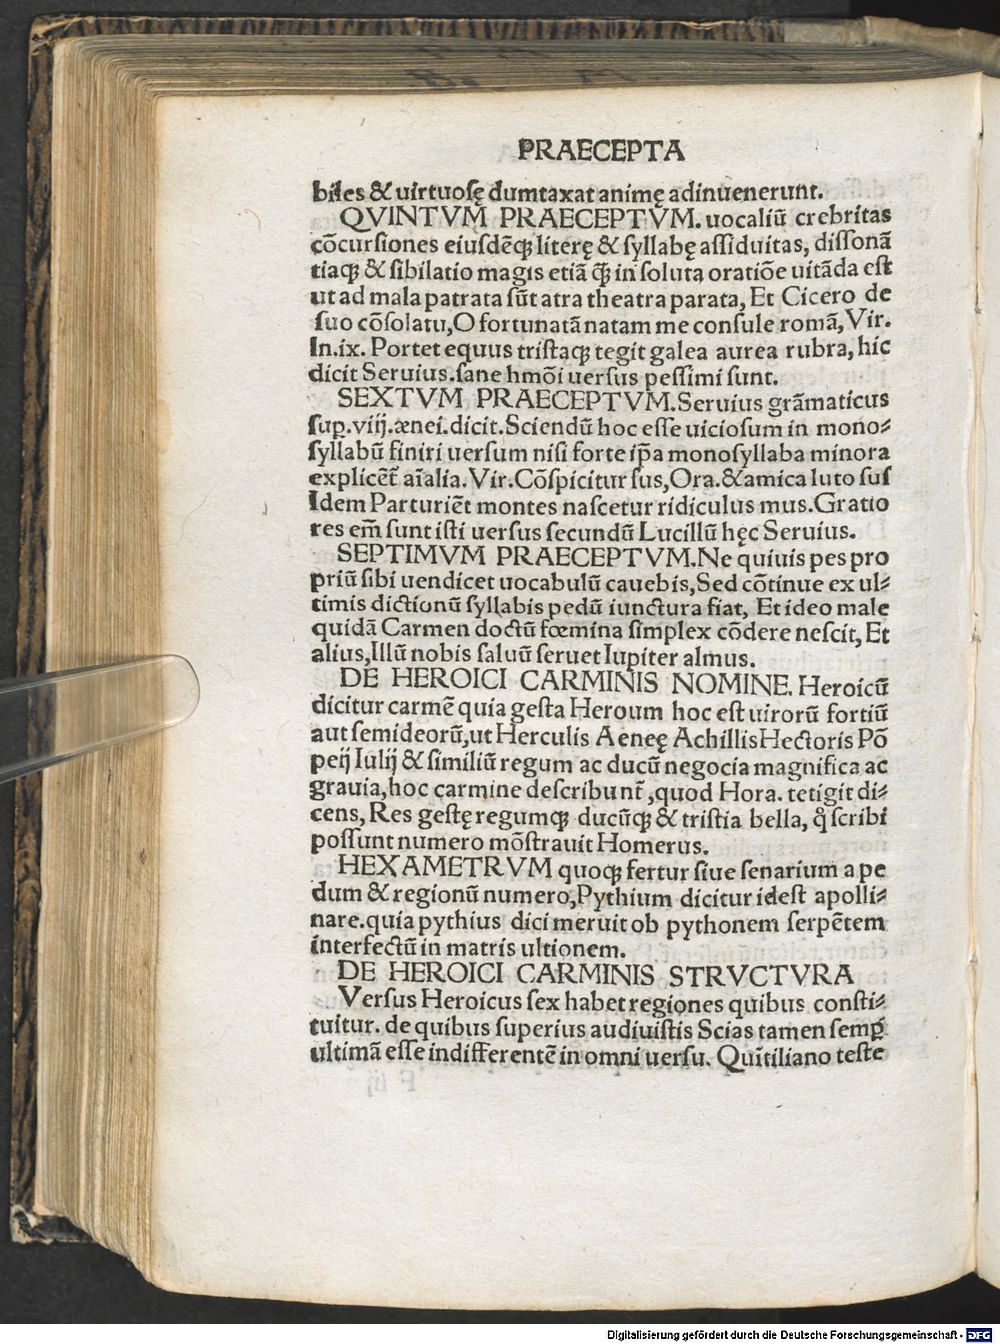 PRAECEPTA
biles & uirtuosę dumtaxat animę adinuenerunt.
QVINTVM PRAECEPTVM. uocaliū crebritas
cōcursiones eiusdēꝗ literę & syllabę assiduitas, dissonā
tiaꝗ & sibilatio magis etiā ꝗ̄ in soluta oratiōe uitāda est
ut ad mala patrata sūt atra theatra parata, Et Cicero de
suo cōsolatu, O fortunatā natam me consule romā, Vir.
In.ix. Portet equus tristaꝗ tegit galea aurea rubra, hic
dicit Seruius. sane hmōi uersus pessimi sunt.
SEXTVM PRAECEPTVM. Seruius grāmaticus
sup̱.viij.ænei.dicit. Sciendū hoc esse uiciosum in mono⸗
syllabū finiri uersum nisi forte ip̄a monosyllaba minora
explicēt̄ aīalia. Vir. Cōspicitur sus, Ora. & amica luto sus
Idem Parturiēt montes nascetur ridiculus mus. Gratio
res em̄ sunt isti uersus secundū Lucillū hęc Seruius.
SEPTIMVM PRAECEPTVM. Ne quiuis pes pro
priū sibi uendicet uocabulū cauebis, Sed cōtinue ex ul⸗
timis dictionū syllabis pedū iunctura fiat, Et ideo male
quidā Carmen doctū fœmina simplex cōdere nescit, Et
alius, Illū nobis saluū seruet Iupiter almus.
DE HEROICI CARMINIS NOMINE. Heroicū
dicitur carmē quia gesta Heroum hoc est uirorū fortiū
aut semideorū, ut Herculis Aeneę Achillis Hectoris Pō
peij Iulij & similiū regum ac ducū negocia magnifica ac
grauia, hoc carmine describunt̄, quod Hora. tetigit di⸗
cens, Res gestę regumꝗ ducūꝗ & tristia bella, qͦ scribi
possunt numero mōstrauit Homerus.
HEXAMETRVM quoꝗ fertur siue senarium a pe
dum & regionū numero, Pythium dicitur idest apolli⸗
nare. quia pythius dici meruit ob pythonem serpētem
interfectū in matris ultionem.
DE HEROICI CARMINIS STRVCTVRA
Versus Heroicus sex habet regiones quibus consti⸗
tuitur. de quibus superius audiuistis Scias tamen semp̱
ultimā esse indifferentē in omni uersu. Quītiliano teste
Digitalisierung gefördert durch die Deutsche Forschungsgemeinschaft - DFG